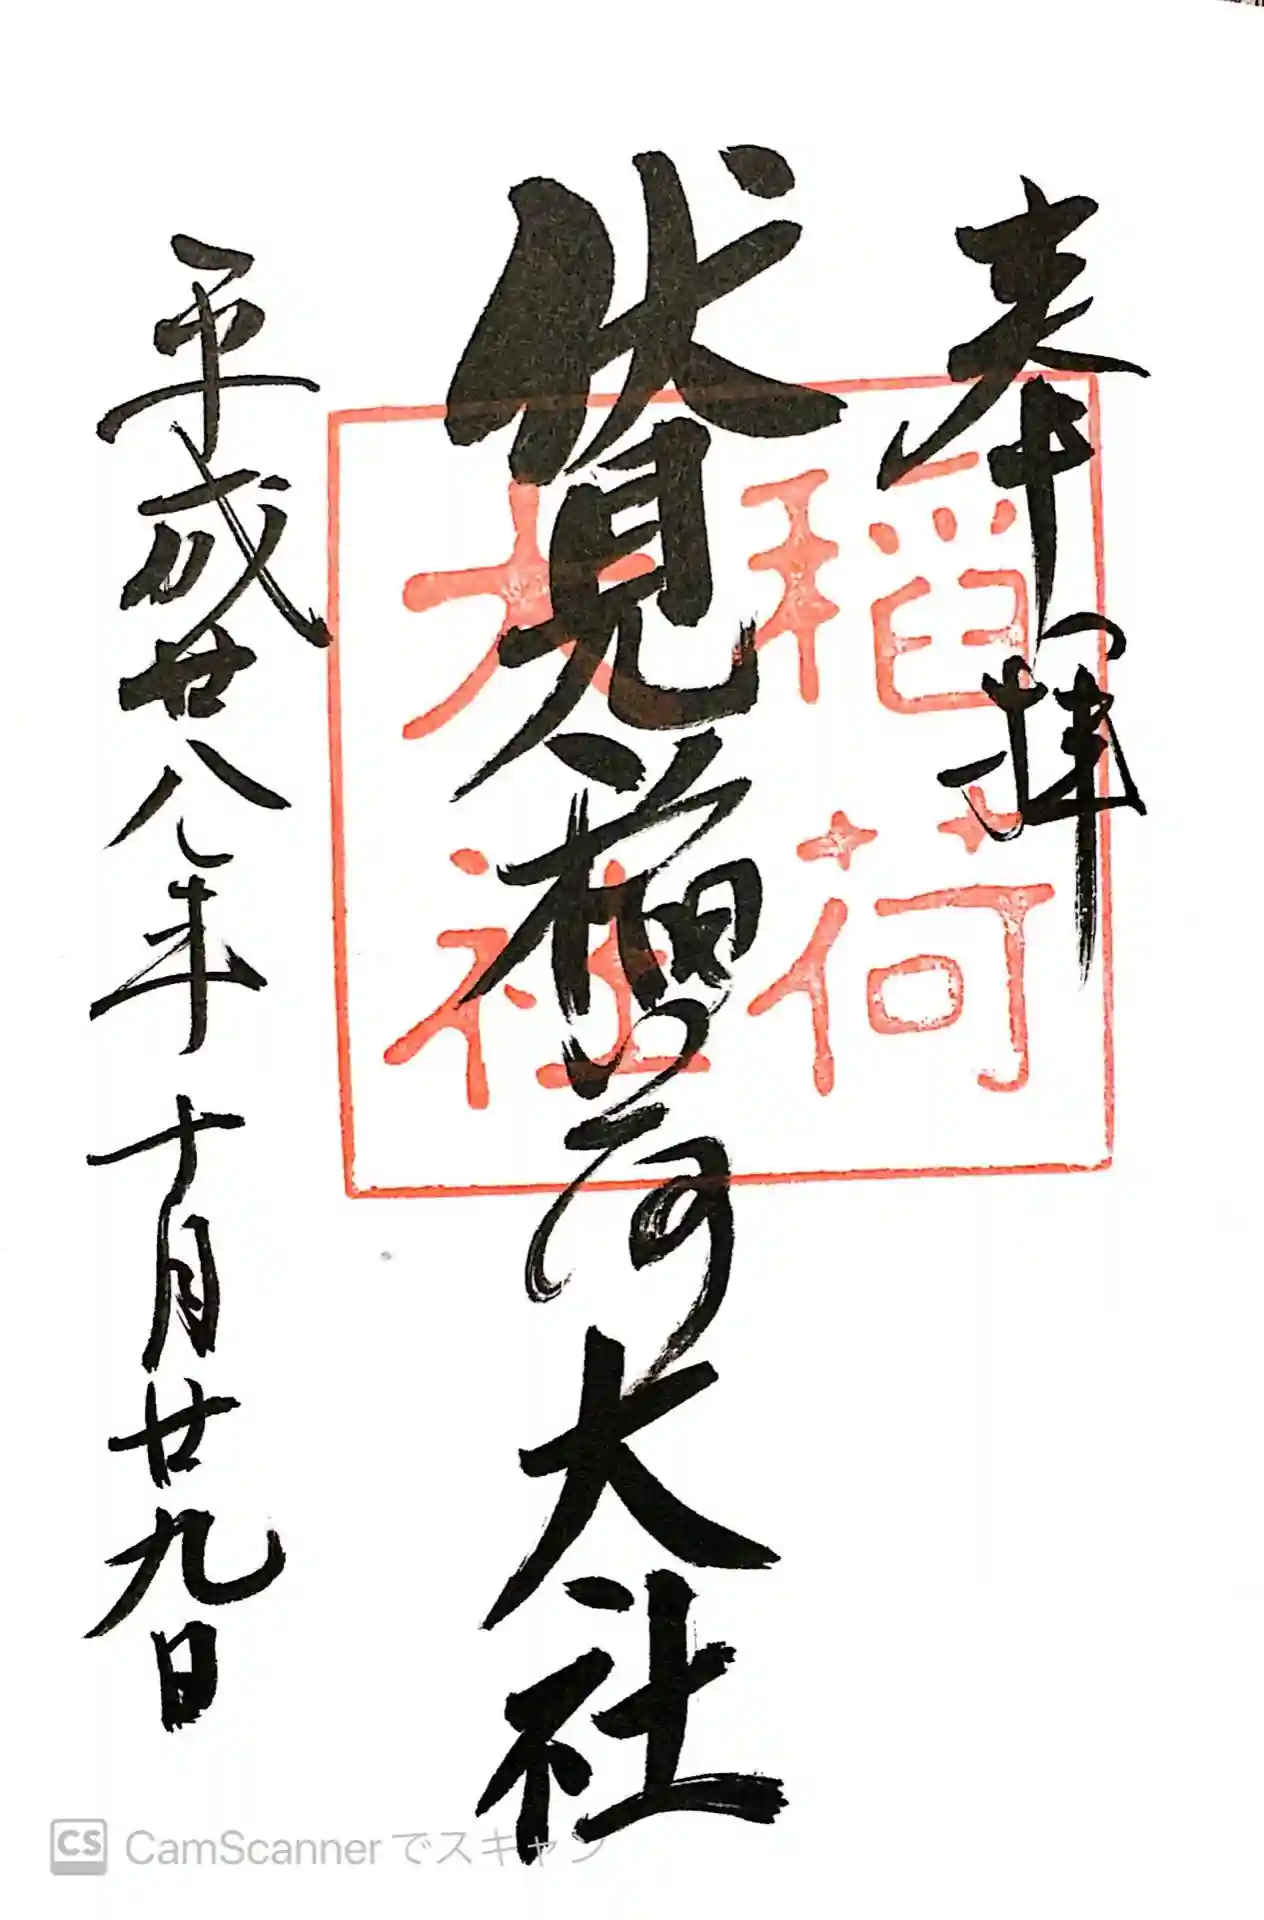 奉拝
伏見稲荷大社
稲荷
大社
平成廿八年十月廿九日
CS CamScannerでスキャン